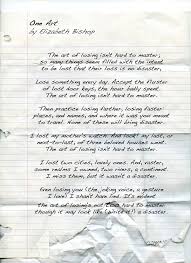 One Art
by Elizabeth Bishop
The art of losing isn't hard to master;
so many things seem filled with the intent
to be lost that their loss is no disaster.
Lose something every day. Accept the fluster
of lost door keys, the hour badly spent.
The art of losing isn't hard to master.
Then practice losing farther, losing faster:
places, and names, and where it was you meant
to travel. None of these will bring disaster.
I lost my mother's watch. And look! my last, or
next-to-last, of three beloved houses went.
The art of losing isn't hard to master.
I lost two cities, lovely ones. And, vaster,
some realms I owned, two rivers, a continent.
I miss them, but it wasn't a disaster.
Even losing you (the joking voice, a gesture
I love) I shan't have lied. It's evident
the art of losing's not too hard to master
though it may look like (Write it!) a disaster.